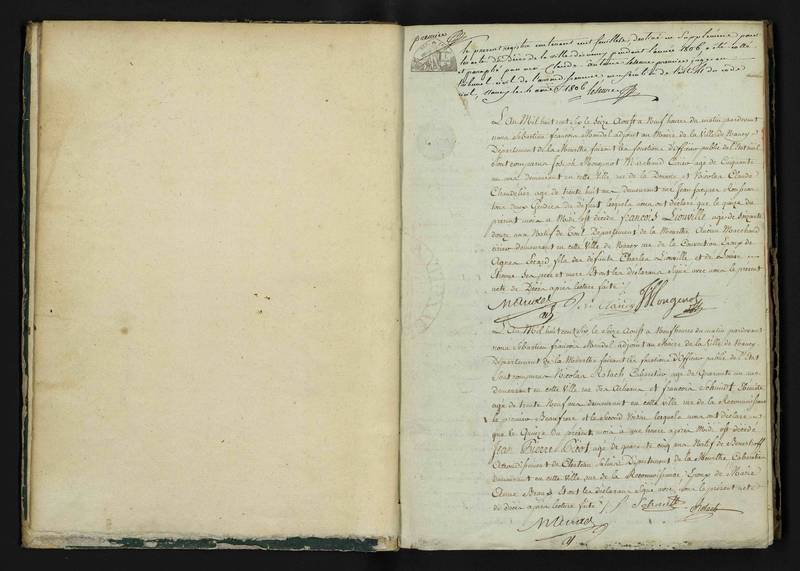 première
Le present registre contenant cent feuillets, destiné en Supplément pour
les actes de Décès de la ville de nancy pendant l'année 1806, a été cotté
et paraphé par nous Claude antoine
tribunal civil de l'arrondissement
nancy le 4 aout 1806
L'An Mil huit cent Six le Seize Aoust a Neuf heures du matin pardevant
nous Sébastien françois Mandel adjoint au Maire de la Ville de Nancy
Département de la Meurthe faisant les fonctions d'officier public de l'Etat civil
Sont comparus Joseph Mougenot Marchand Cirier agé de Cinquante
un ans demeurant en cette Ville rue de la Douane et Nicolas Claude
Chandelier agé de trente huit ans demeurant rue Jean Jacques Rousseau
tous deux Gendres du défunt lesquels nous ont déclaré que le quinze du
présent mois a Midi est décédé François Liouville agé de Soixante
douze ans Natif de Toul Département de la Meurthe Ancien Marchand
cirier demeurant en cette Ville de Nancy rue de la Convention Epoux de
Agnes Sicard fils des défunts Charles Liouville et de Louise
Etienne Ses pere et mere Et ont les déclarans Signé avec nous le présent
acte de Décès après lecture faite
Mandel N. Claude J Mougenot
L'An Mil huit cent Six le Seize Aoust a Neuf heures du matin pardevant
nous Sébastien françois Mandel adjoint au Maire de la Ville de Nancy
Département de la Meurthe faisant les fonctions d'officier public de l'Etat
Sont comparus Nicolas Rolach Cabaretier agé de Quarante un ans
demeurant en cette Ville rue des et françois Schmidt
agé de trente Neuf ans demeurant en cette ville rue de la Reconnaissance
le premier Beaufrere et le Second Voisin lesquels nous ont déclaré
que le Quinze du présent mois a une heure après Midi est décédé
Jean Pierre agé de quarante cinq ans Natif de
Arrondissement de Chateau Salins Département de la Meurthe Cabaretier
demeurant en cette Ville rue de la Reconnaissance Epoux de Marie
Anne Et ont les déclarans Signé avec nous le présent acte
de décès après lecture faite Schmitt Rolach
Mandel